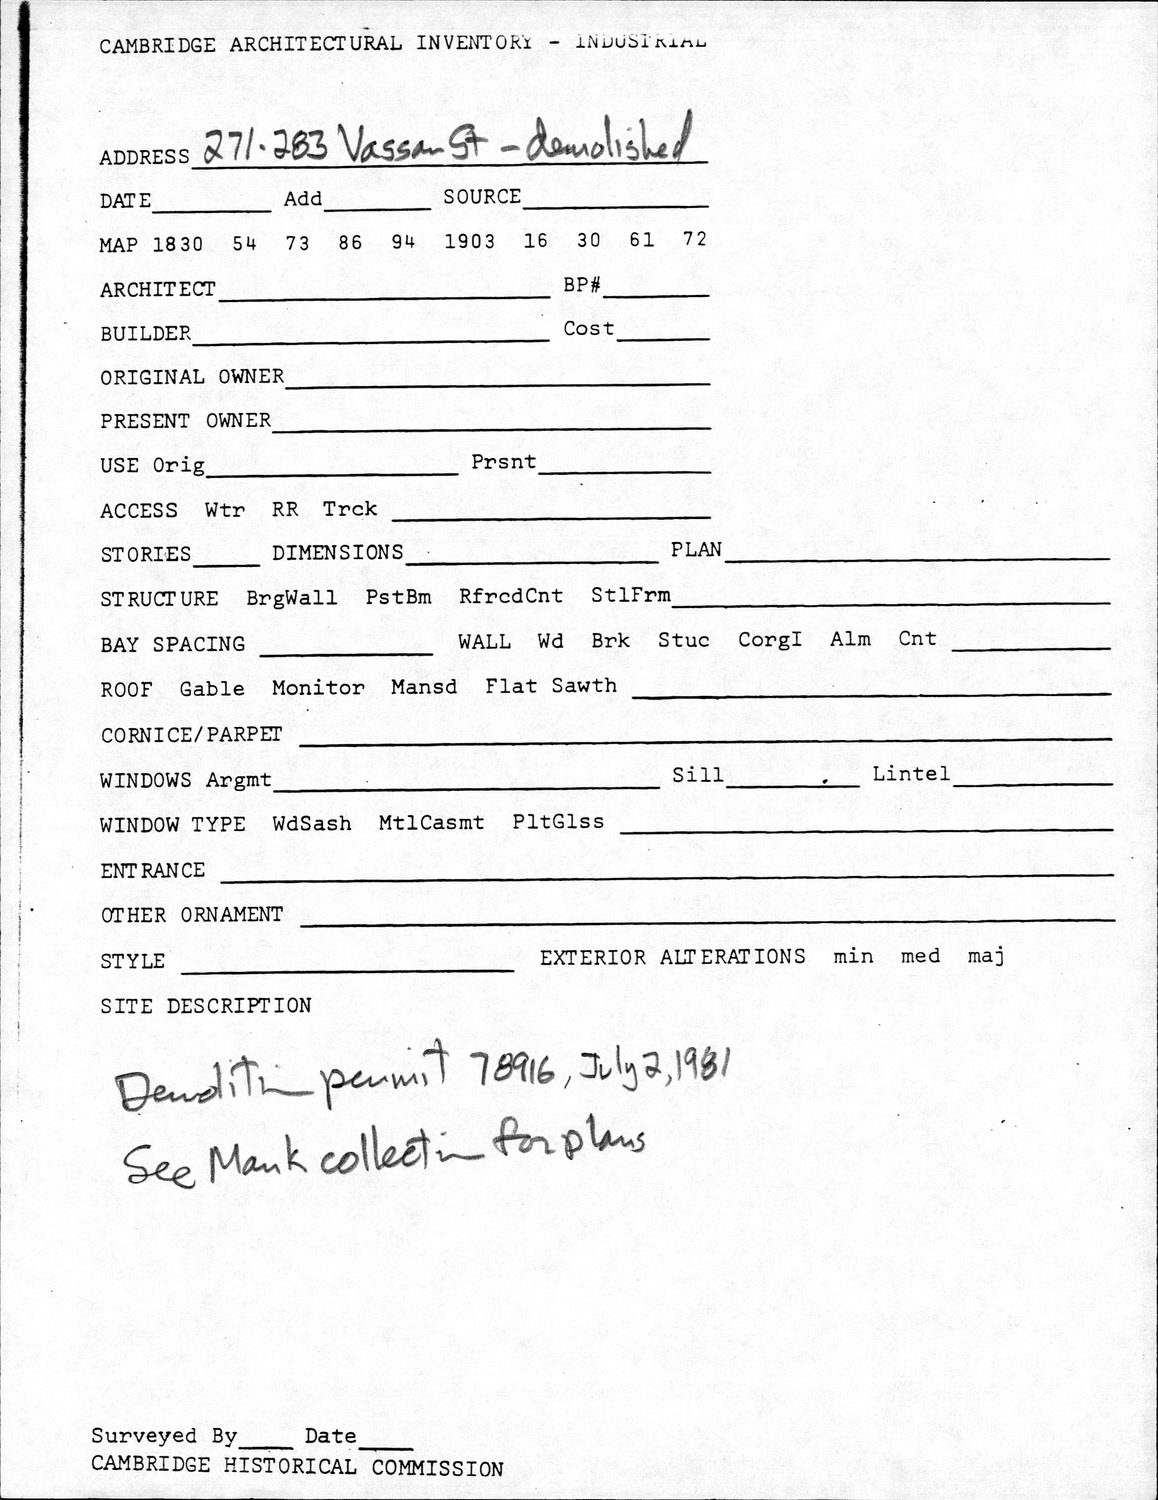 CAMBRIDGE ARCHITECTURAL INVENTORY - INDUSTRIAL
ADDRESS 271-283 Vassar St - demolished
DATE Add SOURCE
MAP 1830 54 73 86 94 1903 16 30 61 72
ARCHITECT BP#
BUILDER Cost
ORIGINAL OWNER
PRESENT OWNER
USE Orig Prsnt
ACCESS Wtr RR Trck
STORIES DIMENSIONS PLAN
STRUCTURE BrgWall PstBm RfrcdCnt StlFrm
BAY SPACING WALL Wd Brk Stuc CorgI Alm Cnt
ROOF Gable Monitor Mansd Flat Sawth
CORNICE/PARPET
WINDOWS Argmt Sill Lintel
WINDOW TYPE WdSash MtlCasmt PltGlss
ENTRANCE
OTHER ORNAMENT
STYLE EXTERIOR ALTERATIONS min med maj
SITE DESCRIPTION
Demolition permit 78916, July 2, 1981
See Mank collection for plans
Surveyed By Date
CAMBRIDGE HISTORICAL COMMISSION